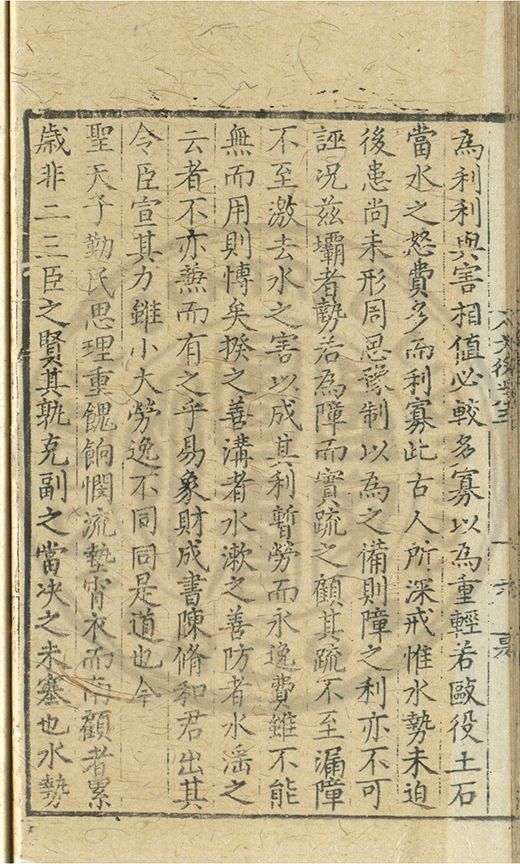 為利利與害相值必較多寡以為重輕若毆役土石
當水之怒費多而利寡此古人所深戒惟水勢未迫
後患尚未形周思豫制以為之備則障之利亦不可
誣况茲壩者勢若為障而實疏之顧其疏不至漏障
不至激去水之害以成其利暫勞而永逸費雖不能
無而用則愽矣揆之善溝者水漱之善防者水滛之
云者不亦兼而有之乎易象財成書陳脩和君出其
令臣宣其力雖小大勞逸不同同是道也今
聖天子勤民思理重餽餉憫流墊宵衣而南顧者累
歳非二三臣之賢其孰克副之當决之未塞也水勢